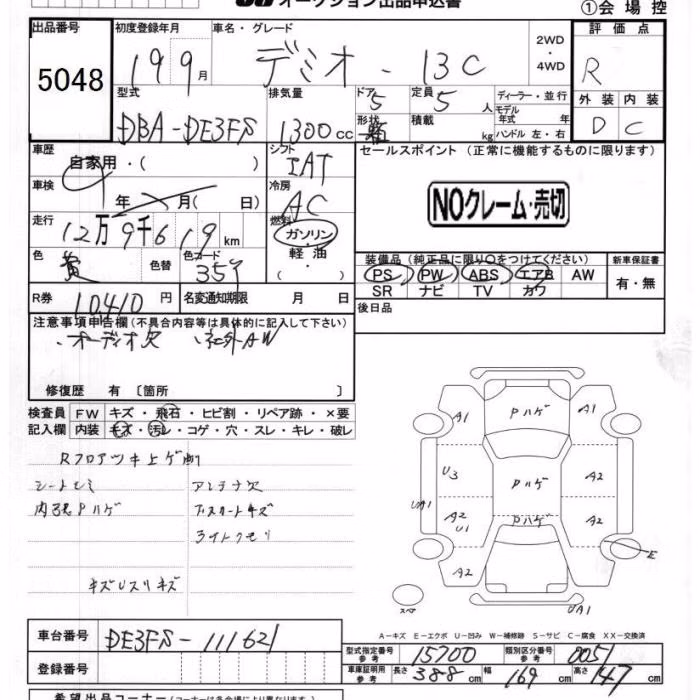 オークション出品申込書
①会場控
出品番号 5048
初度登録年月 19 9月
車名・グレード デミオ - 13C
2WD・4WD
評価点 R
外装 D 内装 C
型式 DBA-DE3FS
排気量 1300cc
ドア 5 形状
定員 5人
積載 kg
ディーラー・並行
モデル年式 年
ハンドル 左・右
車歴 自家用・( )
シフト IAT
セールスポイント (正常に機能するものに限ります)
車検 年 月( 日)
冷房 AC
NOクレーム・売切
走行 12万9千619km
燃料 ガソリン・軽油・( )
色 黄 色替 色コード
装備品(純正品に限り○をつけてください)
新車保証書
PS PW ABS エアB AW
SR ナビ TV カワ
有・無
R券 10410円
名変通知期限 月 日
後日品
注意事項申告欄(不具合内容等は具体的に記入して下さい)
・オーディオ欠 ・社外AW
修復歴 有〔箇所 〕
検査員 FW キズ・飛石・ヒビ割・リペア跡・×要
記入欄 内装 キズ・汚レ・コゲ・穴・スレ・キレ・破レ
Rフロアツキ上ゲ有
シートヤミ アンテナ欠
内張Pハゲ
ライトクモリ
A1 Pハゲ A1
U3 Pハゲ A2
UA1 A2 U1 Pハゲ A2
A2 E
スペア UA1
A-キズ E-エクボ U-凹み W-補修跡 S-サビ C-腐食 XX-交換済
車台番号 DE3FS-111621
型式指定番号 参考 15700 類別区分番号 参考 0051
登録番号
車庫証明用 参考 長さ 388cm 幅 169cm 高さ 147cm
希望出品コーナー